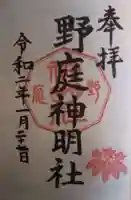 奉拝
野庭神明社
令和二年一月二十一日